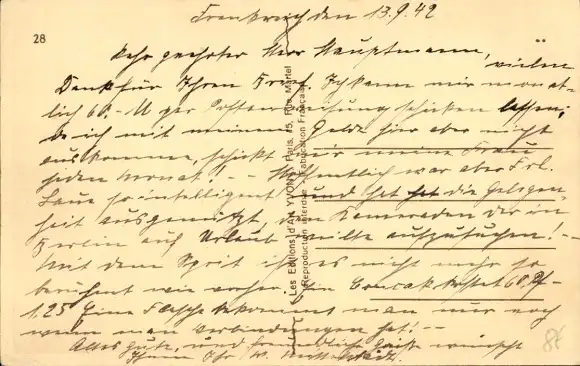 Frankreich den 13.9.42
28
Sehr geehrter Herr Hauptmann, vielen
Dank für Ihren Brief. Ich kann mir monat-
lich 60.-M per Postanweisung schicken lassen;
da ich mit meinem Gelde hier aber nicht
auskomme, schickt mir meine Frau
jeden Monat! - Hoffentlich war aber Frl.
so intelligent und hat die Gelegen-
heit ausgenützt, den Kameraden der in
Berlin auf Urlaub weilte aufzusuchen! -
Mit dem Sprit ist es nicht mehr so
berühmt wie vorher. Ein Cognac kostet 60 Pf -
1.25 Eine Flasche bekommt man nur noch
wenn man Verbindungen hat! --
Alles Gute, und freundliche Grüße wünscht
Ihnen Ihr W.
Les Editions d'Art YVON, Paris, 15, Rue Martel
Reproduction Interdite. Fabrication Française